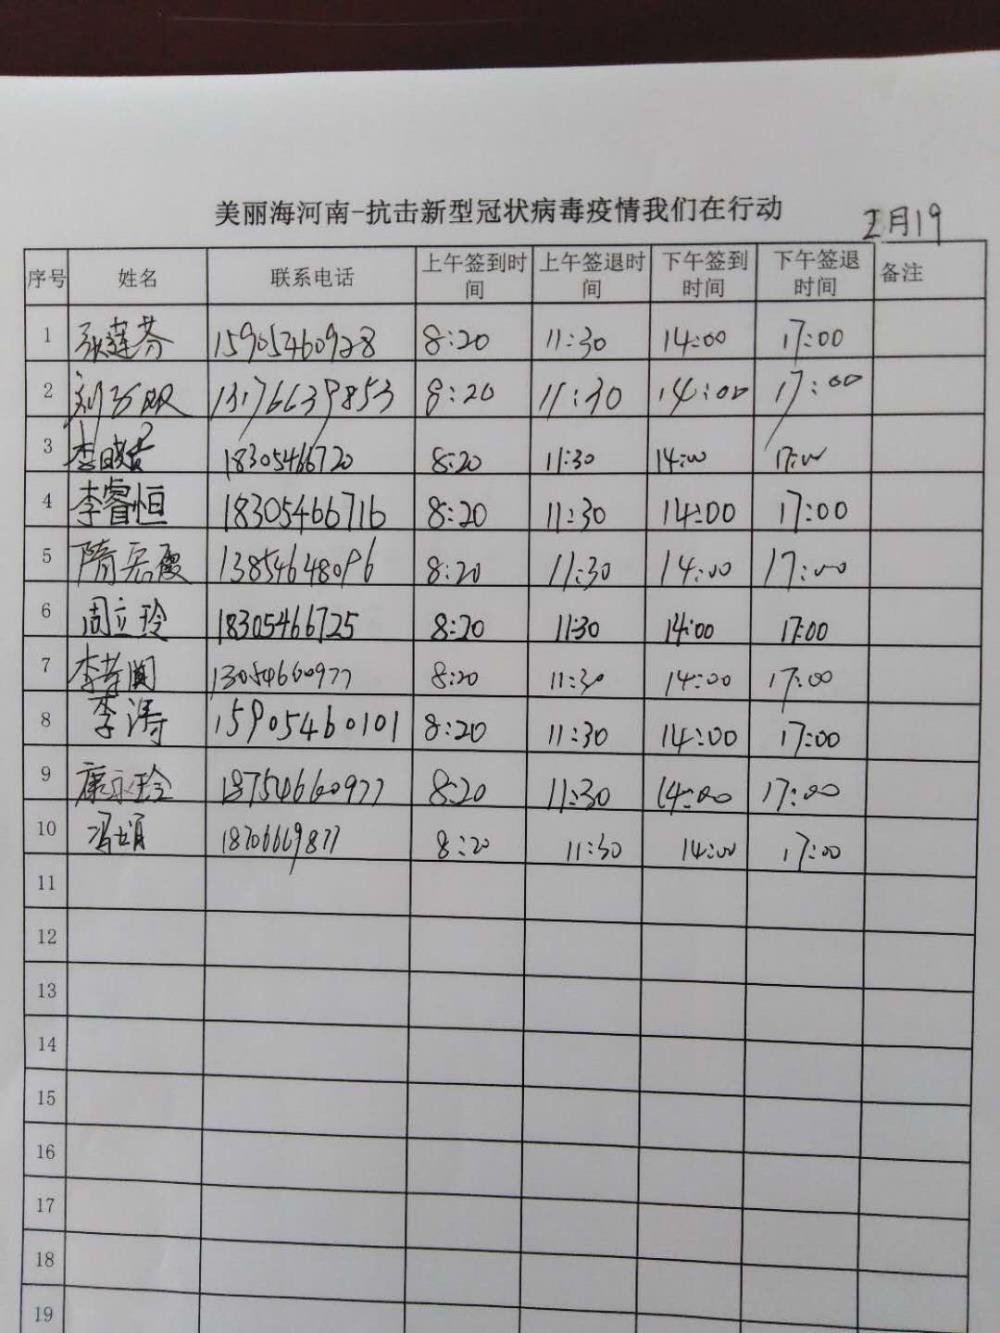 美丽海河南-抗击新型冠状病毒疫情我们在行动
2月19
序号 姓名 联系电话 上午签到时间 上午签退时间 下午签到时间 下午签退时间 备注
1 张莲芬 15905460928 8:20 11:30 14:00 17:00
2 13176639853 8:20 11:30 14:00 17:00
3 18305466720 8:20 11:30 14:00 17:00
4 李睿恒 18305466716 8:20 11:30 14:00 17:00
5 隋宏霞 13854648096 8:20 11:30 14:00 17:00
6 周立玲 18305466725 8:20 11:30 14:00 17:00
7 13054660977 8:20 11:30 14:00 17:00
8 李涛 15905460101 8:20 11:30 14:00 17:00
9 康永玲 18754660977 8:20 11:30 14:00 17:00
10 冯娟 18706669877 8:20 11:30 14:00 17:00
11
12
13
14
15
16
17
18
19